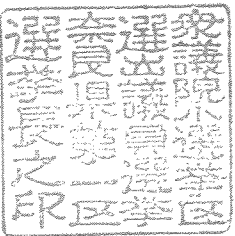 衆議院小選挙区
選出議員選挙
奈良県第一区
選挙長之印